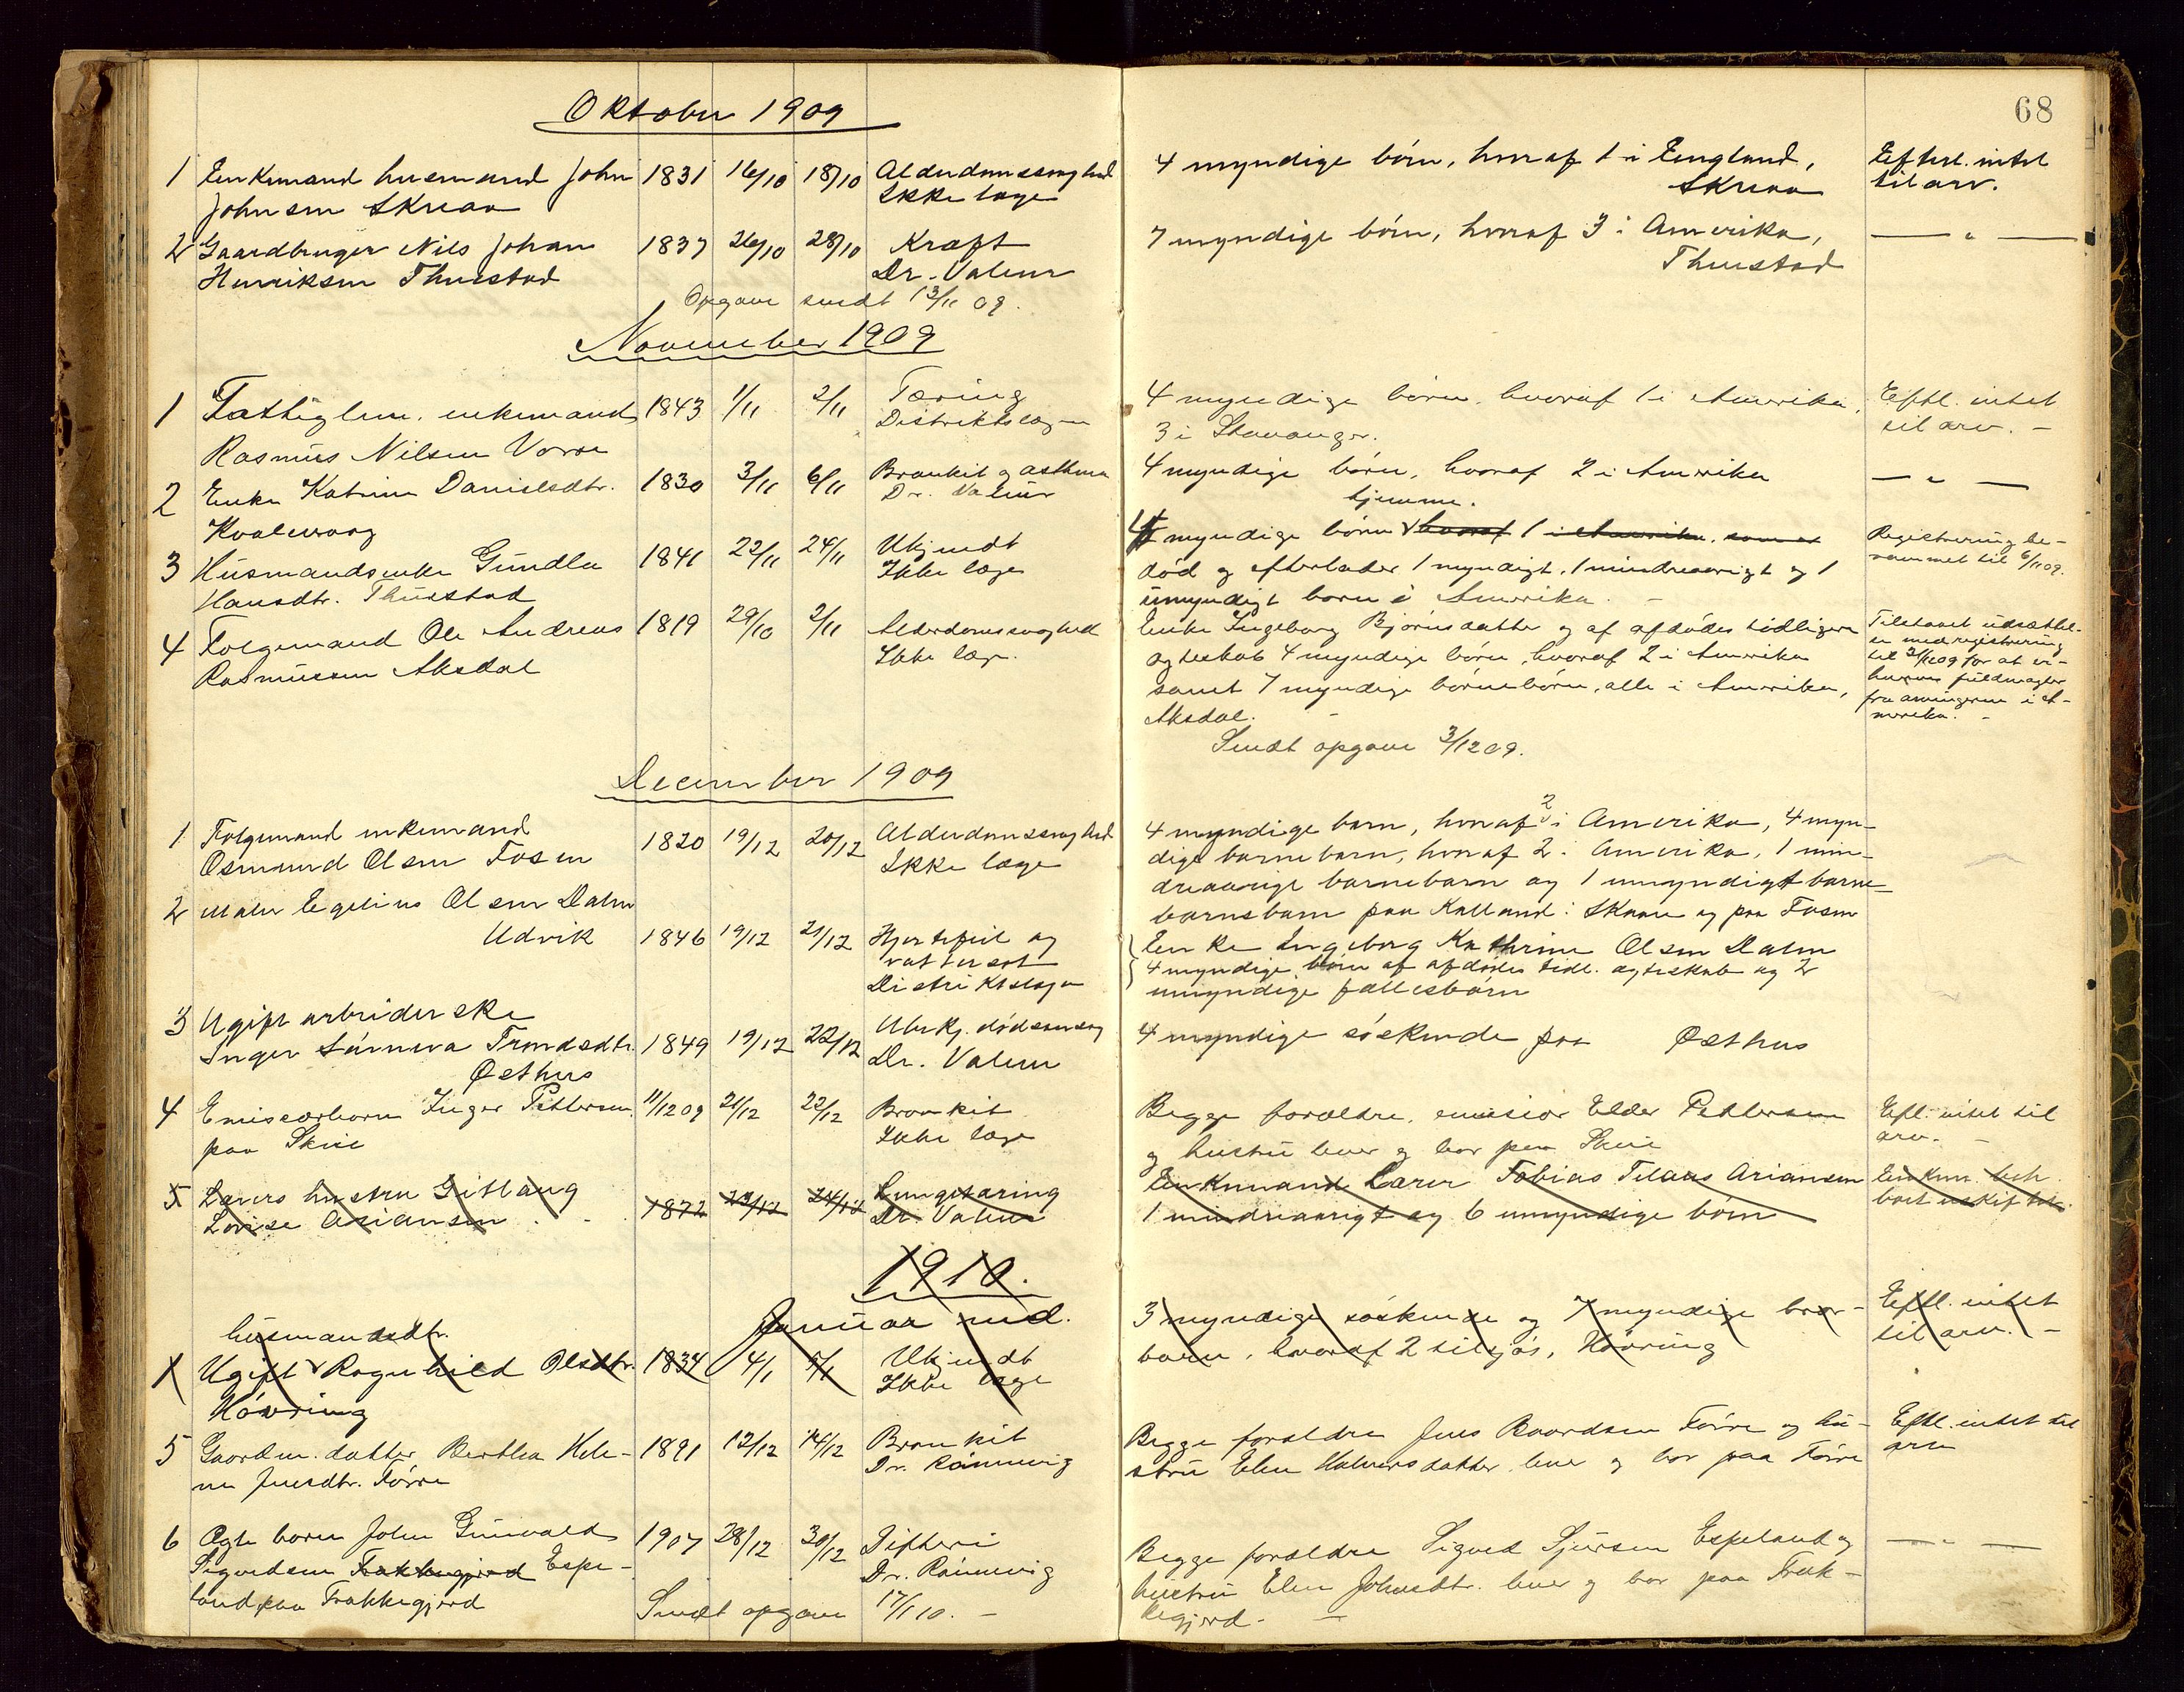 68
Oktober 1909
1 Enkemand husmand John 1831 16/10 18/10 Alderdomssvaghed 4 myndige börn, hvoraf 1 i England, Efterl. intet
Johnsen Skreaa Ikke læge Skreaa til arv.
2 Gaardbruger Nils Johan 1837 26/10 28/10 Kræft 7 myndige börn, hvoraf 3 i Amerika, — " —
Henriksen Thuestad Dr. Valeur Thuestad
Opgave sendt 13/11 09.
November 1909
1 Fattiglem. enkemand 1843 1/11 2/11 Tæring 4 myndige börn, hvoraf 1 i Amerika, Eftl. intet
Rasmus Nilsen Vorre Distriktslægen 3 i Stavanger. til arv. —
2 Enke Katrine Danielsdtr. 1830 3/11 6/11 Bronkit og asthma 4 myndige börn, hvoraf 2 i Amerika — " —
Kvalevaag Dr. Valeur hjemme.
3 Husmandsenke Gundla 1841 22/11 24/11 Ukjendt 4 myndige börn hvoraf 1 i Amerika, som er Registrering be-
Hansdtr. Thuestad Ikke læge död og efterlader 1 myndigt, 1 mindreaarigt og 1 rammet til 6/11 09.
umyndigt barn i Amerika. —
4 Folgemand Ole Andreas 1819 29/10 2/11 Alderdomssvaghed Enke Ingeborg Björnsdatter og af afdödes tidligere Tilstaaet udsættel-
Rasmussen Aksdal Ikke læge. ægteskab 4 myndige börn, hvoraf 2 i Amerika se med registrering
samt 7 myndige börnebörn, alle i Amerika, til 2/12 09 for at er-
Aksdal. — hverve fuldmagter
fra arvingerne i A-
merika. —
Sendt opgave 3/12 09.
December 1909
1 Folgemand enkemand 1820 19/12 20/12 Alderdomssvaghed 4 myndige barn, hvoraf 2 i Amerika, 4 myn-
Osmund Olsen Fosen Ikke læge dige barnebarn, hvoraf 2 i Amerika, 1 min-
dreaarige barnebarn og 1 umyndigt barne-
barnsbarn paa Kalland i Skaare og paa Fosen
2 Maler Egelius Olsen Dalen Enke Ingeborg Kathrine Olsen Dalen
Udvik 1846 19/12 21/12 Hjertefeil og 4 myndige börn af afdödes tidl. ægteskab og 2
vattersot umyndige fællesbörn
Distriktslægen
3 Ugift arbeiderske
Inger Sörineva Trondsdtr. 1849 19/12 22/12 Ubekj. dödsaarsag 4 myndige söskende paa Östhus
Östhus Dr. Valeur
4 Emisærbarn Inger Pettersen 11/12 09 21/12 22/12 Bronkit Begge forældre, emisær Elder Pettersen Eftl. intet til
paa Skeie Ikke læge og hustru lever og bor paa Skeie arv. —
5 Lærers hustru Gitlaug 1872 23/12 24/12 Lungetæring Enkemand Lærer Tobias Tilaus Ariansen Enkem. beh.
Lovise Ariansen Dr. Valeur 1 mindreaarigt og 6 umyndige börn boet uskiftet.
1910.
Januar md.
husmandsdtr.
1 Ugift Ragnhild Olsdtr. 1834 4/1 5/1 Ukjendt 3 myndige söskende og 7 myndige bror- Eftl. intet
Hövring Ikke læge börn, hvoraf 2 tilsjös, Hövring til arv. —
5 Gaardm. datter Berthea Hele- 1891 12/12 14/12 Bronkit Begge forældre Jens Baardsen Förre og hu- Eftl. intet til
ne Jensdtr. Förre Dr. Rönnevig stru Elen Halversdatter lever og bor paa Förre arv
6 Ægte barn John Gunvald 1907 28/12 30/12 Difteri Begge forældre Sigved Sjursen Espeland og — " —
Sigvedsen Frakkagjerd Espe- Dr. Rönnevig hustru Elen Johnsdtr. lever og bor paa Frak-
land paa Frakkagjerd kegjerd. —
Sendt opgave 17/1 10. —